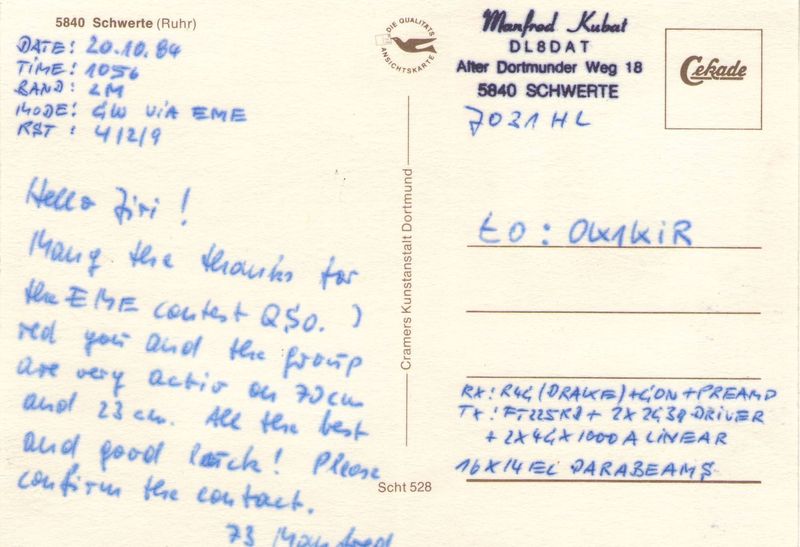 5840 Schwerte (Ruhr)
DATE: 20.10.84
TIME: 1056
BAND: 2M
MODE: CW VIA EME
RST: 412/9
Hello Jiri!
Many the thanks for
the EME contest QSO. I
red you and the group
are very activ on 70cm
and 23 cm. All the best
and good luck! Please
confirm the contact.
73 Manfred
DIE QUALITÄTS
ANSICHTSKARTE
Cramers Kunstanstalt Dortmund
Scht 528
Manfred Kubat
DL8DAT
Alter Dortmunder Weg 18
5840 SCHWERTE
7031 HL
Cekade
to: OK1KIR
RX: R4C (DRAKE) + CON + PREAMP
TX: FT225RD + 2X2C39 DRIVER
+ 2X4CX1000A LINEAR
16X14El PARABEAMS